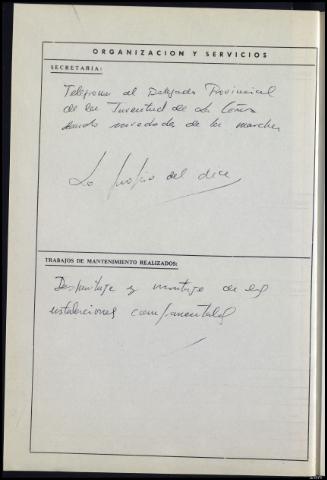 ORGANIZACION Y SERVICIOS
SECRETARIA:
Telegrama al Delegado Provincial
de la Juventud de La Coruña
dando novedades de la marcha
Lo propio del dia
TRABAJOS DE MANTENIMIENTO REALIZADOS:
Desmontaje y montaje de las
instalaciones campamentales